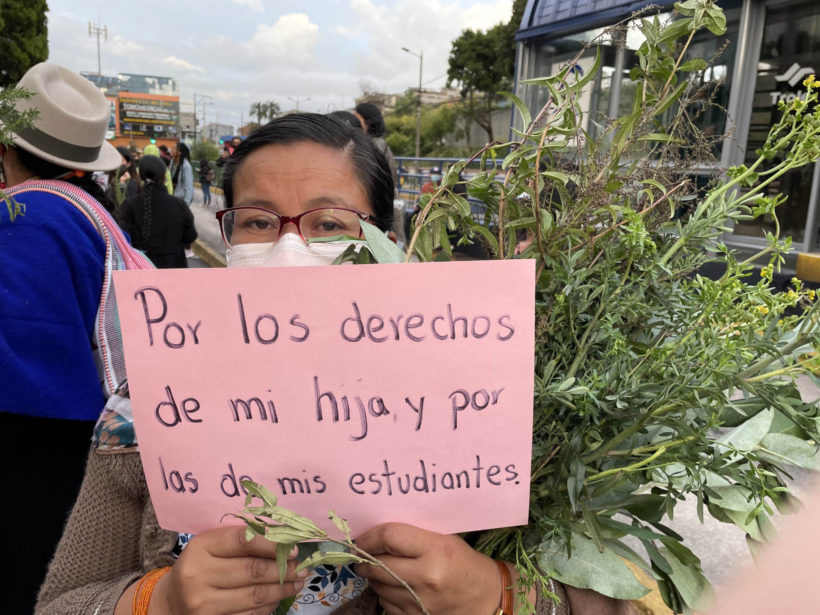 Por los derechos
de mi hija, y por
las de mis estudiantes.